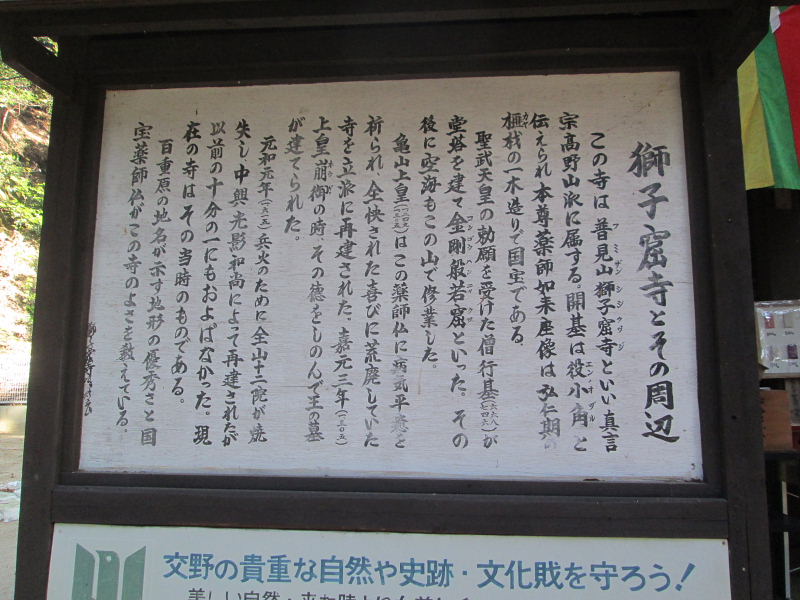 獅子窟寺とその周辺
この寺は普見山獅子窟寺といい真言
宗高野山派に属する。開基は役小角と
伝えられ本尊薬師如来座像は弘仁期の
榧材の一木造りで国宝である。
聖武天皇の勅願を受けた僧行基(六六八〜七四九)が
堂塔を建て金剛般若窟といった。その
後に空海もこの山で修業した。
亀山上皇はこの薬師仏に病気平癒を
祈られ、全快された喜びに荒廃していた
寺を立派に再建された。嘉元三年(一三〇五)
上皇崩御の時、その徳をしのんで王の墓
が建てられた。
元和元年(一六一五)兵火のために全山十二院が焼
失し中興光影和尚によって再建されたが
以前の十分の一にもおよばなかった。現
在の寺はその当時のものである。
百重原の地名が示す地形の優秀さと国
宝薬師仏がこの寺のよさを教えている。
交野の貴重な自然や史跡・文化財を守ろう!